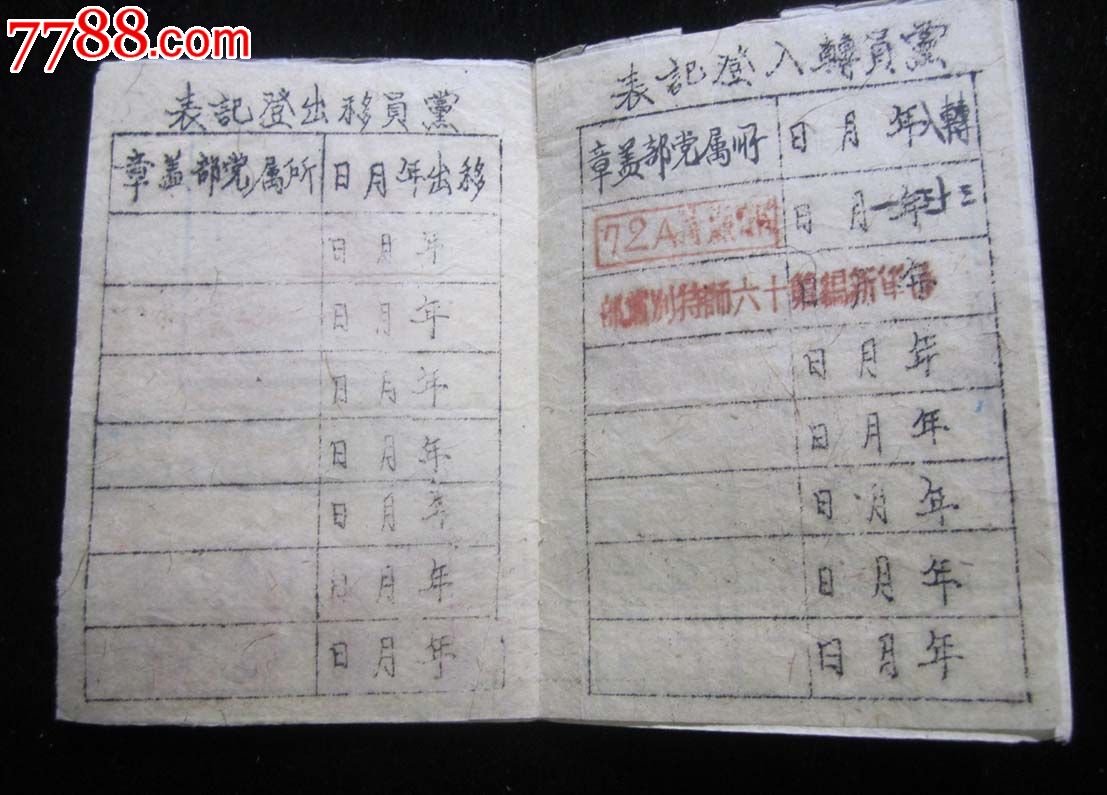 7788.com
中国收藏热线
黨員轉入登記表
轉入年月日 所属党部盖章
年月日 72A
年月日 軍新編第十六師特別黨部
年月日
年月日
年月日
年月日
年月日
黨員移出登記表
移出年月日 所属党部盖章
年月日
年月日
年月日
年月日
年月日
年月日
年月日